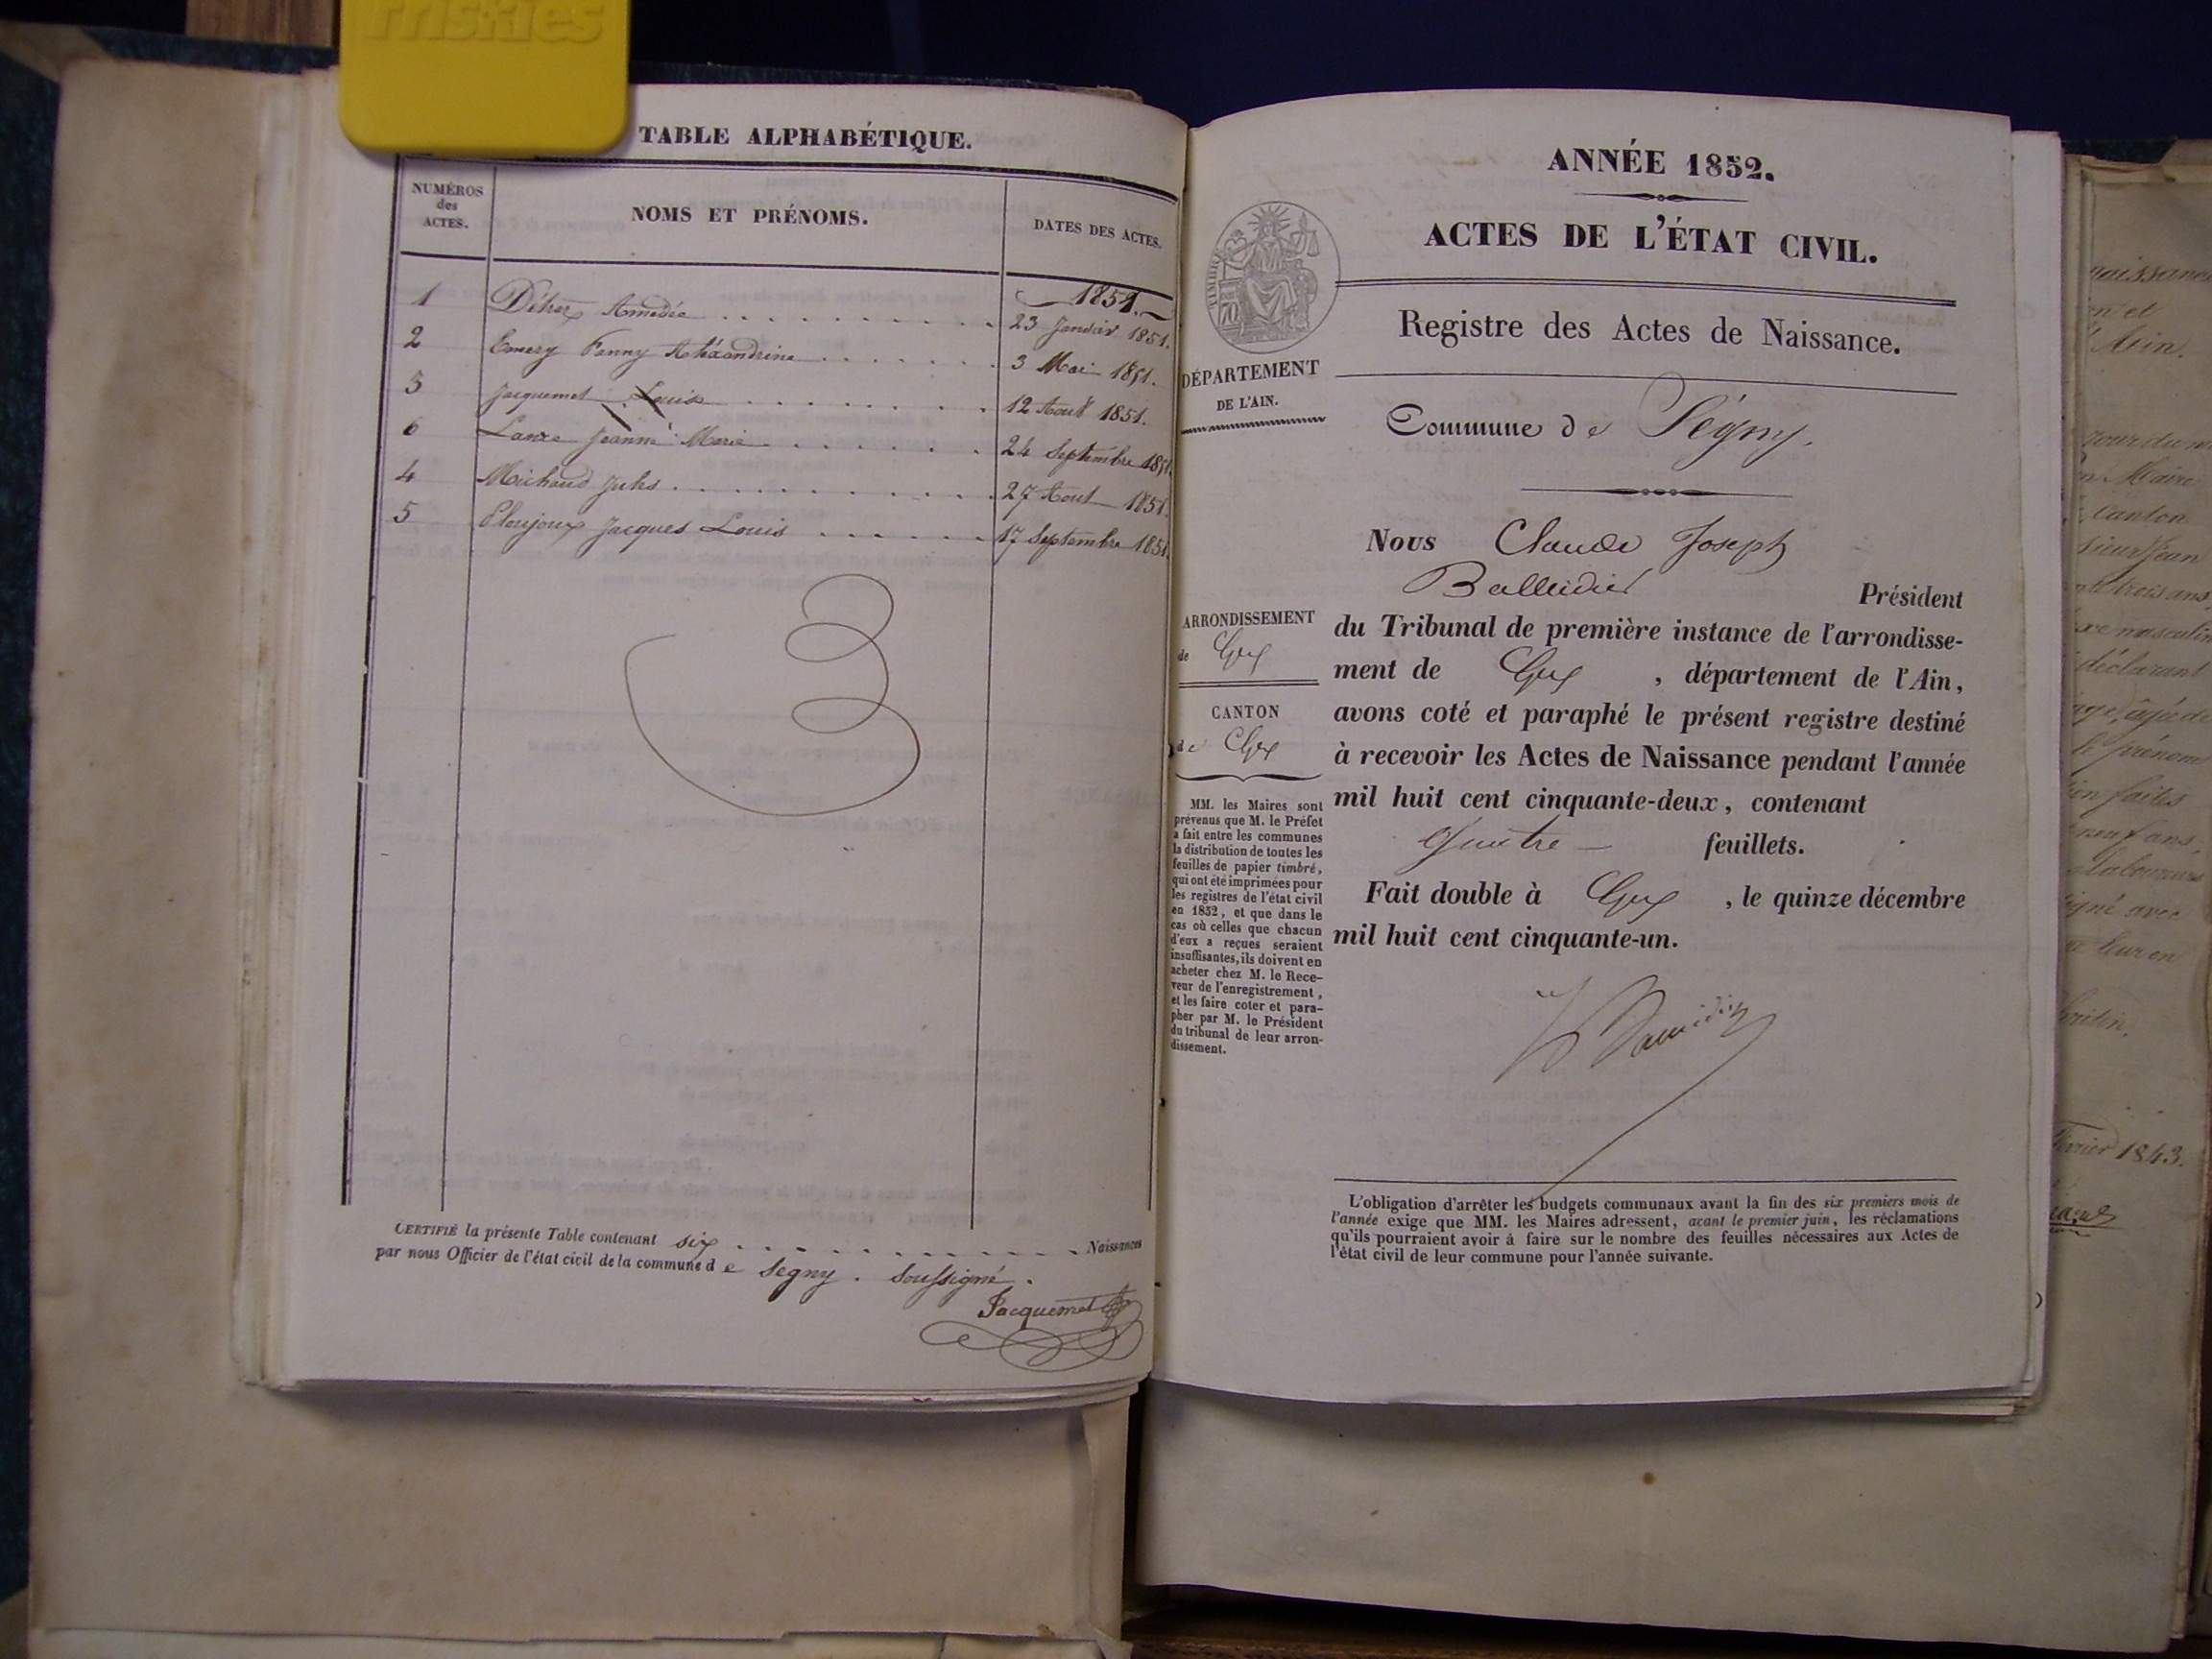 friskies
TABLE ALPHABÉTIQUE.
NUMÉROS
des
ACTES.
NOMS ET PRÉNOMS.
DATES DES ACTES.
1851.
1 Amédée 23 Janvier 1851.
2 Emery Fanny Aléxandrine 3 Mai 1851.
3 Jacquemet Louise 12 Aout 1851.
6 Lanxe Jeanne Marie 24 Septembre 1851
4 Michaud Jules 27 Aout 1851.
5 Ploujoux Jacques Louis 17 Septembre 1851
CERTIFIÉ la présente Table contenant six Naissances
par nous Officier de l'état civil de la commune de Segny. Soussigné.
Jacquemet
ANNÉE 1852.
ACTES DE L'ÉTAT CIVIL.
Registre des Actes de Naissance.
TIMBRE
70
DÉPARTEMENT
DE L'AIN.
Commune de Ségny.
Nous Claude Joseph
Balleidier Président
du Tribunal de première instance de l'arrondisse-
ment de Gex, département de l'Ain,
avons coté et paraphé le présent registre destiné
à recevoir les Actes de Naissance pendant l'année
mil huit cent cinquante-deux, contenant
Quatre feuillets.
Fait double à Gex, le quinze décembre
mil huit cent cinquante-un.
ARRONDISSEMENT
de Gex
CANTON
de Gex
MM. les Maires sont
prévenus que M. le Préfet
a fait entre les communes
la distribution de toutes les
feuilles de papier timbré,
qui ont été imprimées pour
les registres de l'état civil
en 1852, et que dans le
cas où celles que chacun
d'eux a reçues seraient
insuffisantes, ils doivent en
acheter chez M. le Rece-
veur de l'enregistrement,
et les faire coter et para-
pher par M. le Président
du tribunal de leur arron-
dissement.
L'obligation d'arrêter les budgets communaux avant la fin des six premiers mois de
l'année exige que MM. les Maires adressent, avant le premier juin, les réclamations
qu'ils pourraient avoir à faire sur le nombre des feuilles nécessaires aux Actes de
l'état civil de leur commune pour l'année suivante.
Ain.
Maire
Canton
trois ans
masculin
déclarant
prénom
faites
neuf ans,
laboureur
avec
1843.